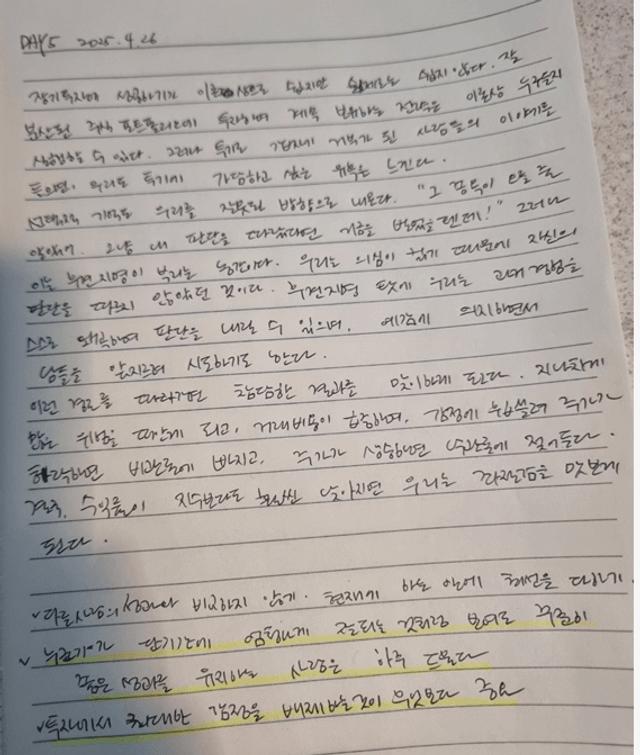 DAY5 2025.4.26
장기투자에 성공하기가 이론상으로 쉽지만 실제로는 쉽지 않다. 잘
분산된 주식 포트폴리오에 투자하여 계속 보유하는 전략은 이론상 누구든지
실행할 수 있다. 그러나 투기로 갑자기 거부가 된 사람들의 이야기를
들으면, 우리도 투기에 가담하고 싶은 유혹을 느낀다.
선택적 기억도 우리를 잘못된 방향으로 내몬다. "그 종목이 오를 줄
알았어. 그냥 내 판단을 따랐다면 거금을 벌었을텐데!" 그러나
이는 후견지명이 부리는 농간이다. 우리는 의심이 많기 때문에 자신의
판단을 따르지 않았던 것이다. 후견지명 탓에 우리는 과거 경험을
스스로 왜곡하여 판단을 내릴 수 있으며, 예감에 의지하면서
남들을 앞지르려 시도하기도 한다.
이런 경로를 따라가면 참담한 결과를 맞이하게 된다. 지나차게
많은 위험을 떠안게 되고, 거래비용이 급증하며, 감정에 휩쓸려 주가가
하락하면 비관론에 빠지고, 주가가 상승하면 낙관론에 젖어든다.
결국, 수익률이 지수보다도 훨씬 낮아지면 우리는 좌절감을 맛보게
된다.
✓다른 사람의 성과와 비교하지 않게. 현재에 하는 안에 최선을 다하기.
✓ 누군가가 단기간에 엄청나게 잘되는 것처럼 보여도 꾸준히
좋은 성과를 유지하는 사람은 아주 드물다
✓투자에서 최대한 감정을 배제하는것이 무엇보다 중요